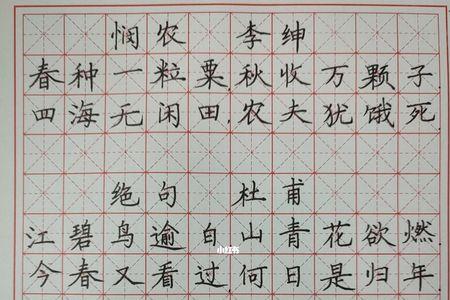 悯农 李绅
春种一粒粟,秋收万颗子.
四海无闲田,农夫犹饿死.
绝句 杜甫
江碧鸟逾白,山青花欲燃.
小红书
今春又看过,何日是归年.